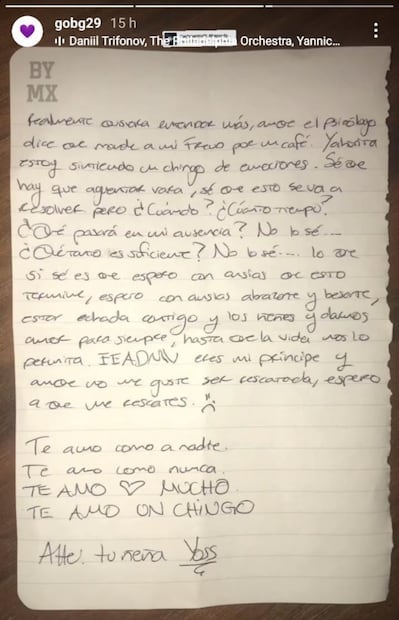 gobg29 15 h
Daniil Trifonov, The Orchestra, Yannic...
BY
MX
Realmente quisiera entender más, aunque el psicólogo
dice que mande a mi Freud por un café. Y ahorita
estoy sintiendo un chingo de emociones. Sé que
hay que aguantar vara, sé que esto se va a
resolver pero ¿Cuándo? ¿Cuánto tiempo?
¿Qué pasará en mi ausencia? No lo sé...
¿Qué tanto es suficiente? No lo sé.... lo que
si sé es que espero con ansias que esto
termine, espero con ansias abrazarte y besarte,
estar echada contigo y los nenes y darnos
amor para siempre, hasta que la vida nos lo
permita. eres mi príncipe y
aunque no me guste ser rescatada, espero
a que me rescates.
Te amo como a nadie.
Te amo como nunca.
TE AMO ♡ MUCHO.
TE AMO UN CHINGO
Atte. tu nena Yoss